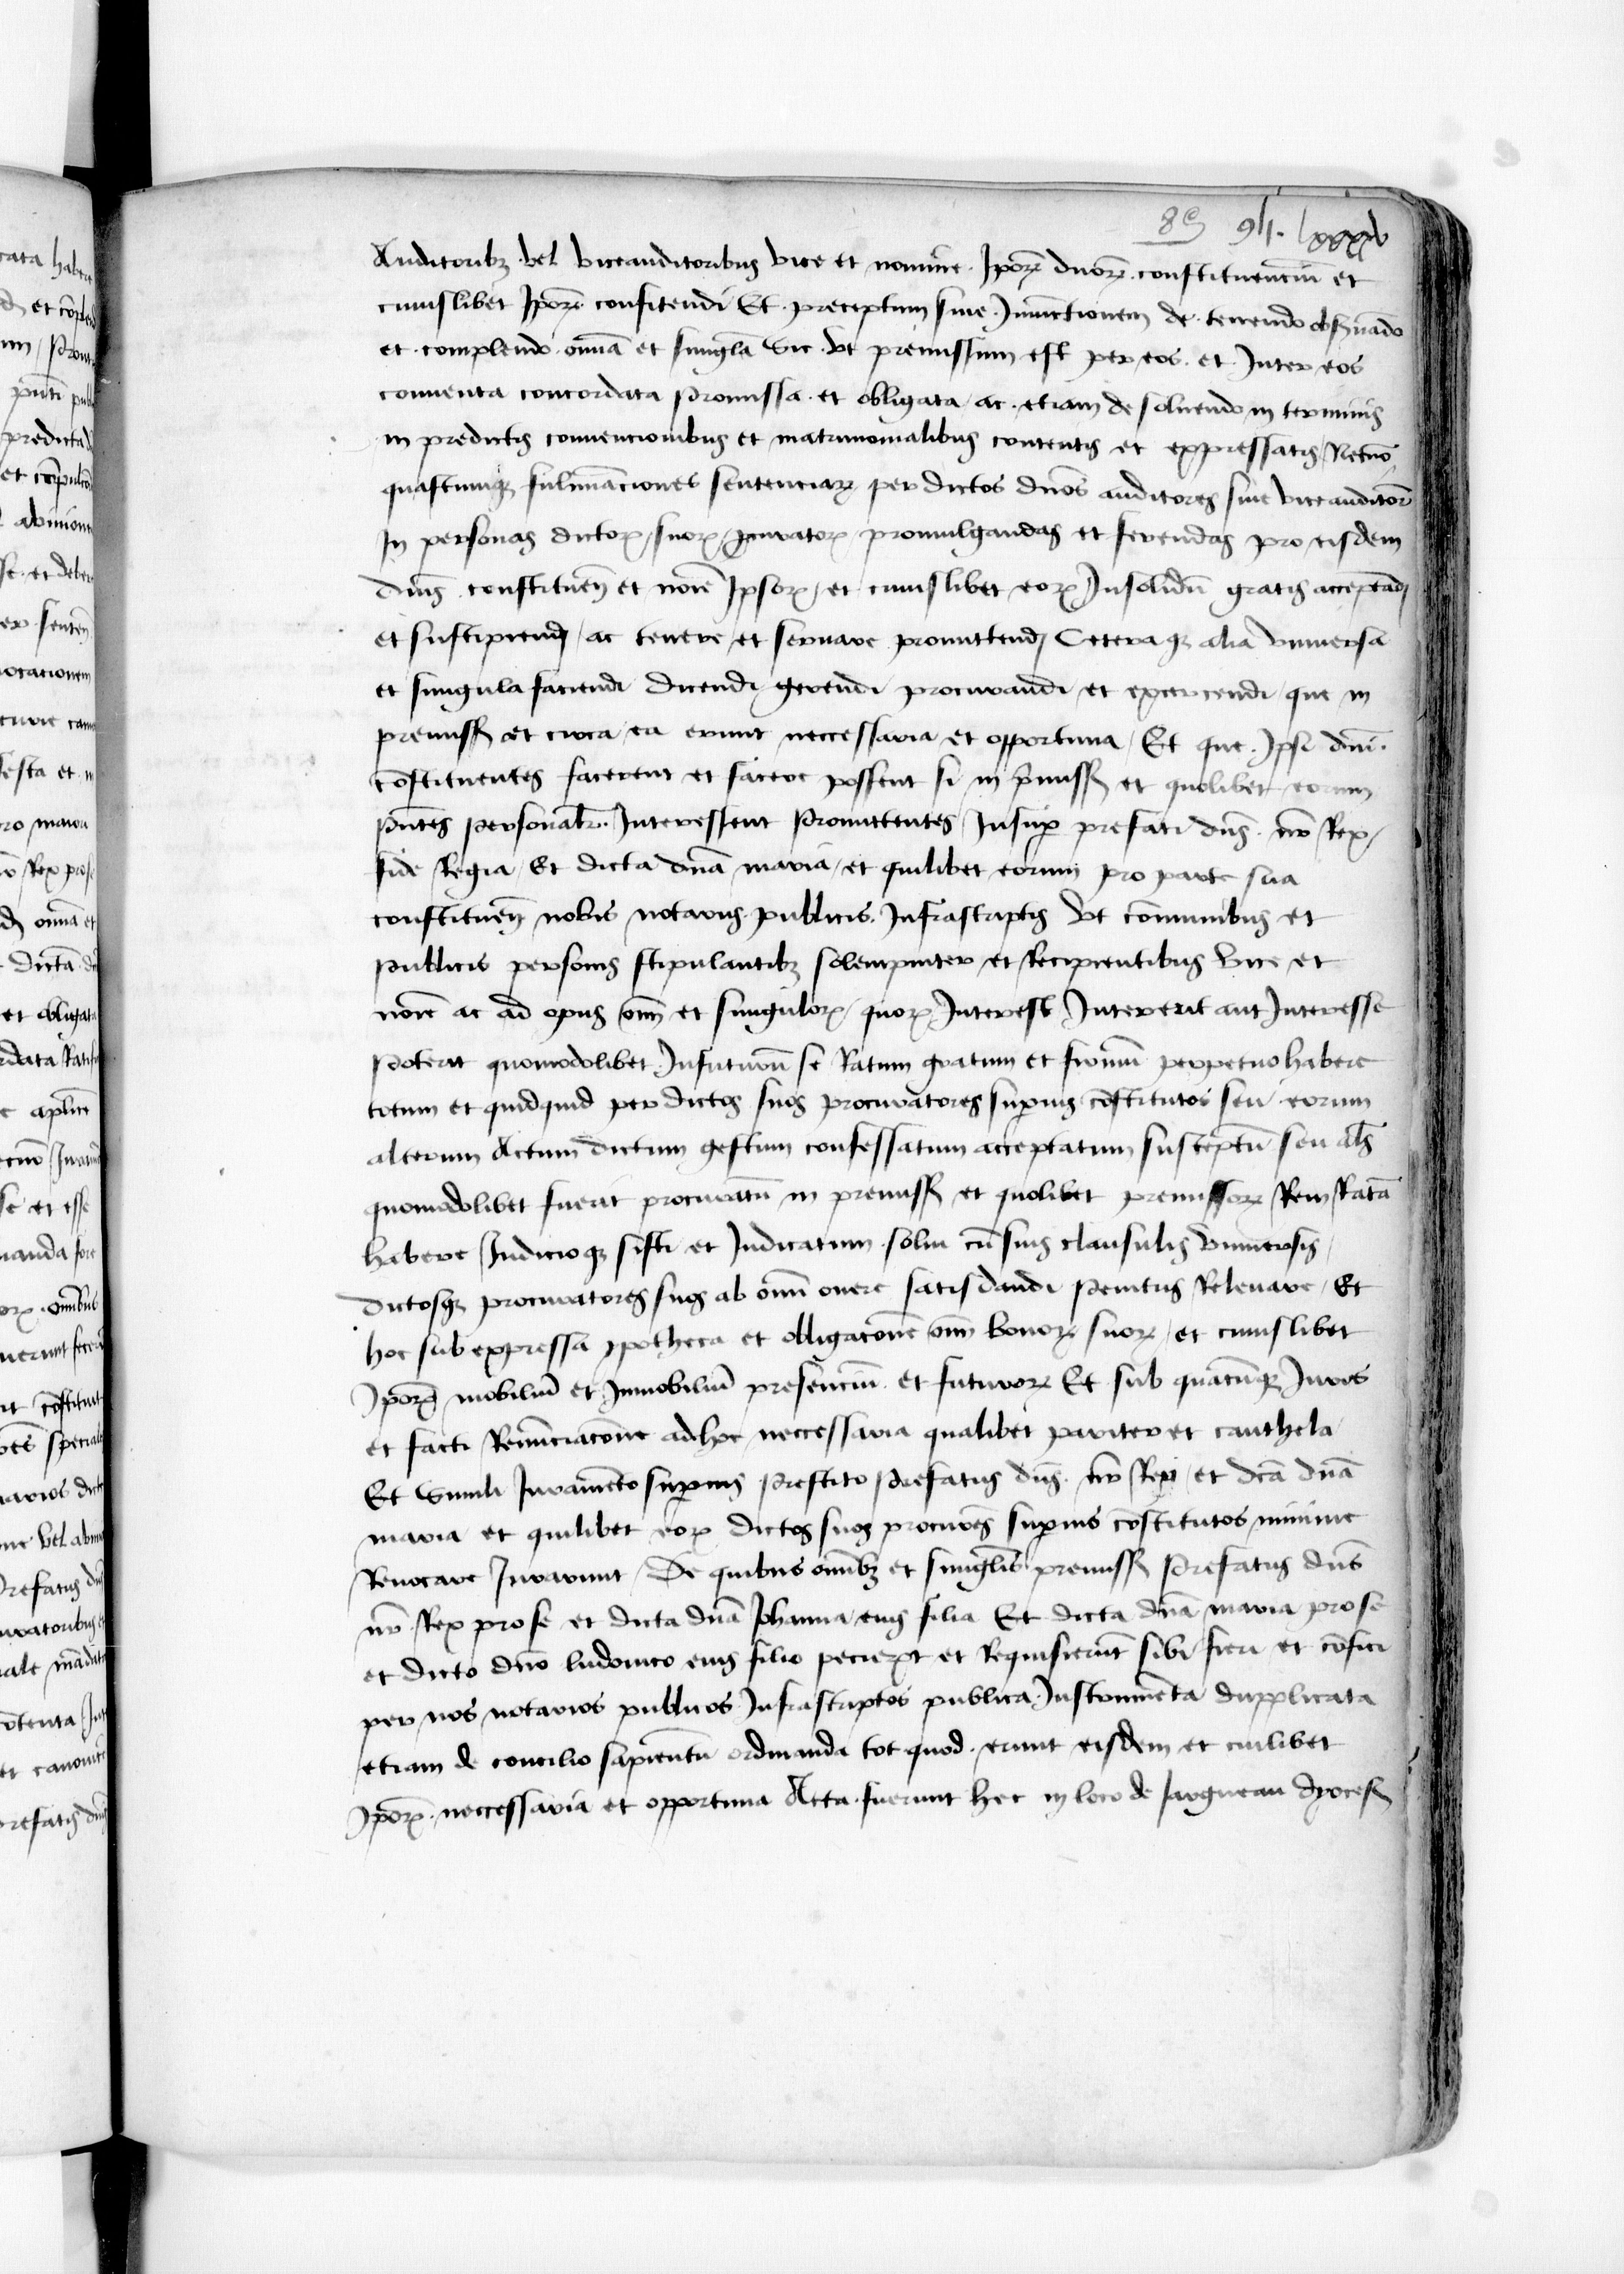 89 94. lxxxv
Auditoribꝫ vel viceauditoribus vice et nomine Ipoꝝ dnoꝝ constituenciū et
cuiuslibet Ipoꝝ confitendi Et preceptum siue Iniunctionem de tenendo obseruādo
et complendo omīa et singl̄a sic vt premissum est per eos et Inter eos
conuenta concordata promissa et obligata ac etiam de soluendo in terminis
in predictis conuencionibus et matrimonialibus contentis et expressatis Necnō
quascumqꝫ fulminaciones sentenciaꝝ per dictos dnos̄ auditores siue viceauditor̄
In personas dictoꝝ suoꝝ procuratoꝝ promulgandas et ferendas pro eisdem
dnis̄ constituen̄ et noīe Ipsoꝝ et cuiuslibet eoꝝ Insolidū gratis acceptād
et suscipiend ac tenere et seruare promittend Ceteraqꝫ alia vniuersa
et singula faciendi dicendi gerendi procurandi et excercendi que in
premiss et circa ea erunt neccessaria et opportuna Et que Ipsi dnī
cōstituentes facerent et facere possent si in p̄miss et quolibet eorum
pn̄tes personalr̄ Interessent Promittentes Insup̄ prefati dns̄ nr̄ Rex
fide Regia Et dicta dnā maria et quilibet eorum pro parte sua
constituen̄ nobis notariis publicis Infrascriptis vt cōmunibus et
publicis personis stipulantibꝫ solempniter et Recipientibus vice et
noīe ac ad opus om̄ et singuloꝝ quoꝝ Interest Intererit aut Interesse
poterit quomodolibet Infuturū se Ratum gratum et firmū perpetuo habere
totum et quidquid per dictos suos procuratores sup̄ius cōstitutos seu eorum
alterum Actum dictum gestum confessatum acceptatum susceptū seu al̄s
quomodolibet fuerit procuratū in premiss et quolibet premissoꝝ Rem Ratā
habere Iudicioqꝫ sisti et Iudicatum solui cū suis clausulis vniuersis
dictosqꝫ procuratores suos ab omni onere satisdandi penitus Releuare Et
hoc sub expressa ypotheca et obligacōne om̄ bonoꝝ suoꝝ et cuiuslibet
Ipoꝝ mobiliū et Inmobiliū presenciū et futuroꝝ Et sub quacūqꝫ Iuris
et facti Renūciacōne adhoc neccessaria qualibet pariter et cauthela
Et simili Iuramēto sup̄ius prestito prefatus dns̄ nr̄ Rex et dcā dnā
maria et quilibet eoꝝ dictos suos procurōes sup̄ius cōstitutos minime
Reuocare Iurarunt De quibus omībꝫ et singl̄is premiss Prefatus dns̄
nr̄ Rex pro se et dicta dnā Iohanna eius filia Et dicta dnā maria pro se
et dicto dnō ludouico eius filio pecierūt et Requisierūt sibi fieri et cōfici
per nos notarios publicos Infrascriptos publica Instrumēta dupplicata
etiam de concilio sapientū ordinanda tot quod erunt eisdem et cuilibet
Ipoꝝ neccessaria et opportuna Acta fuerunt hec in loco de Iargueau dyoces